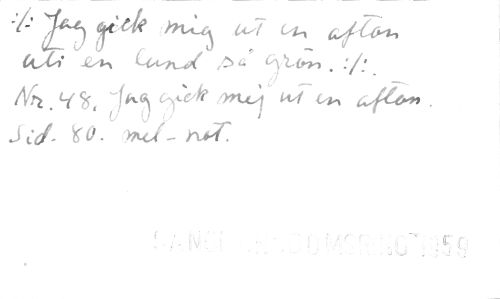 :/: Jag gick mig ut en afton
uti en lund så grön. :/:
Nr. 48. Jag gick mej ut en afton.
Sid. 80. mel-not.
1959